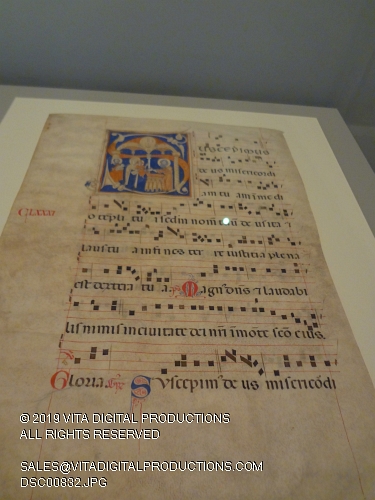 uscepimus
de us misericordi
am tu am in medi
CLXXXI
o templi tu i scdm nomen tuum de us ita &
laus tu a in fi nes ter re iusticia plena
est dextera tu a. Magn' dn's & laudabi
lis nimis in ciuitate dei nri in monte sco eius.
Gloria. Suscepim' de us misericordi
© 2019 VITA DIGITAL PRODUCTIONS
ALL RIGHTS RESERVED
SALES@VITADIGITALPRODUCTIONS.COM
DSC00832.JPG